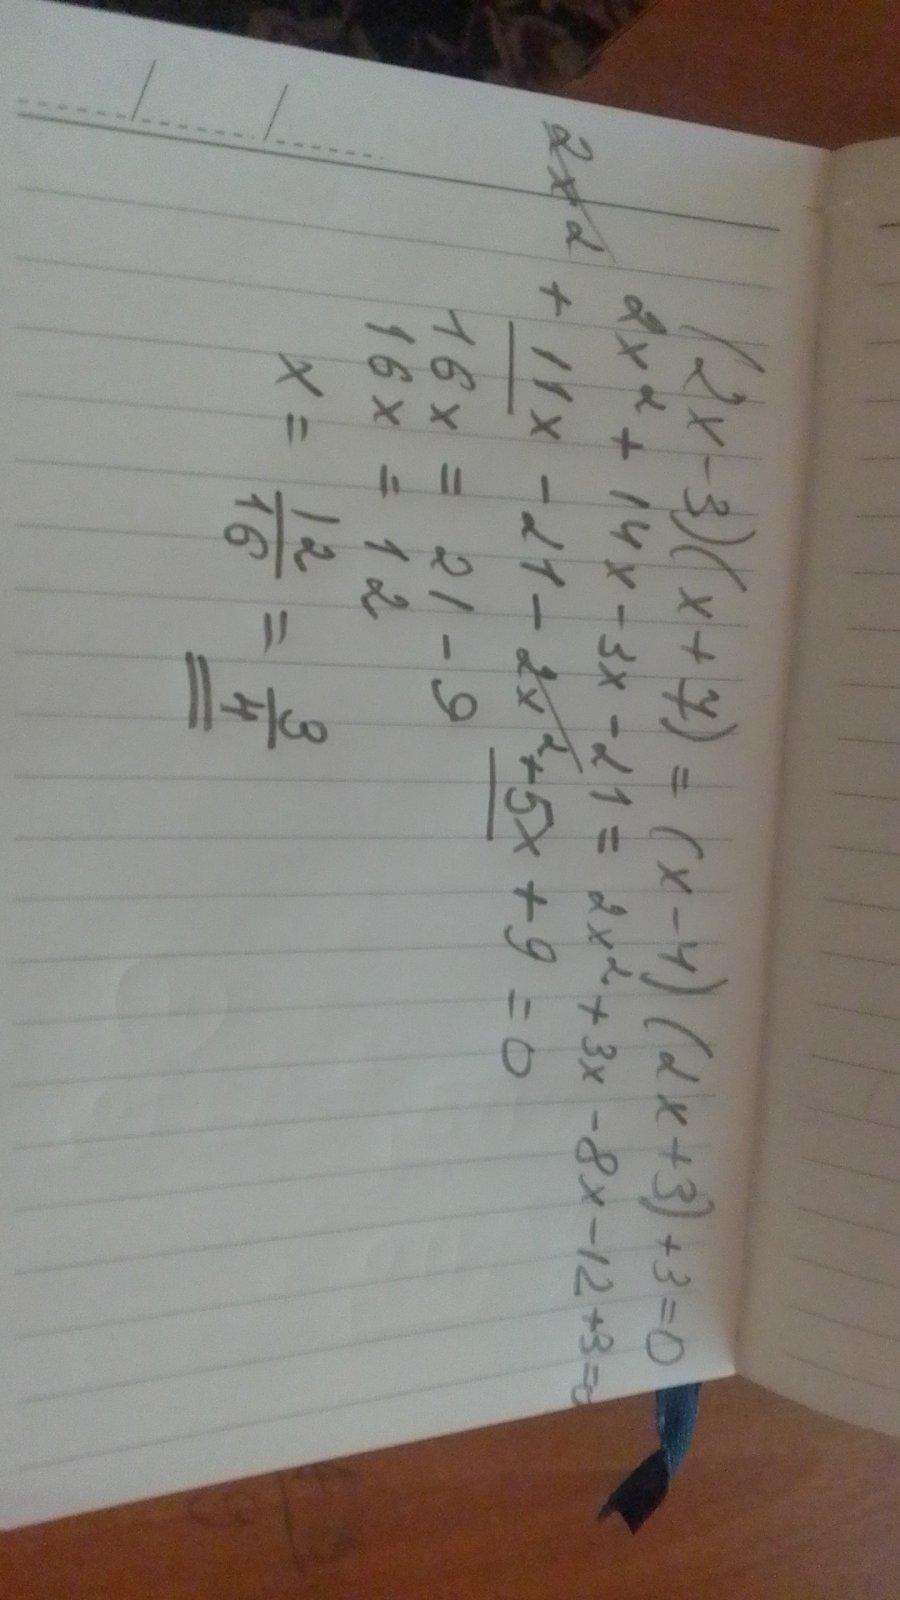 (2x-3)(x+7) = (x-4)(2x+3)+3=0
2x²+14x-3x-21 = 2x²+3x-8x-12+3=0
2x² + 11x - 21 - 2x²+5x+9 = 0
16x = 21-9
16x = 12
x = 12/16 = 3/4